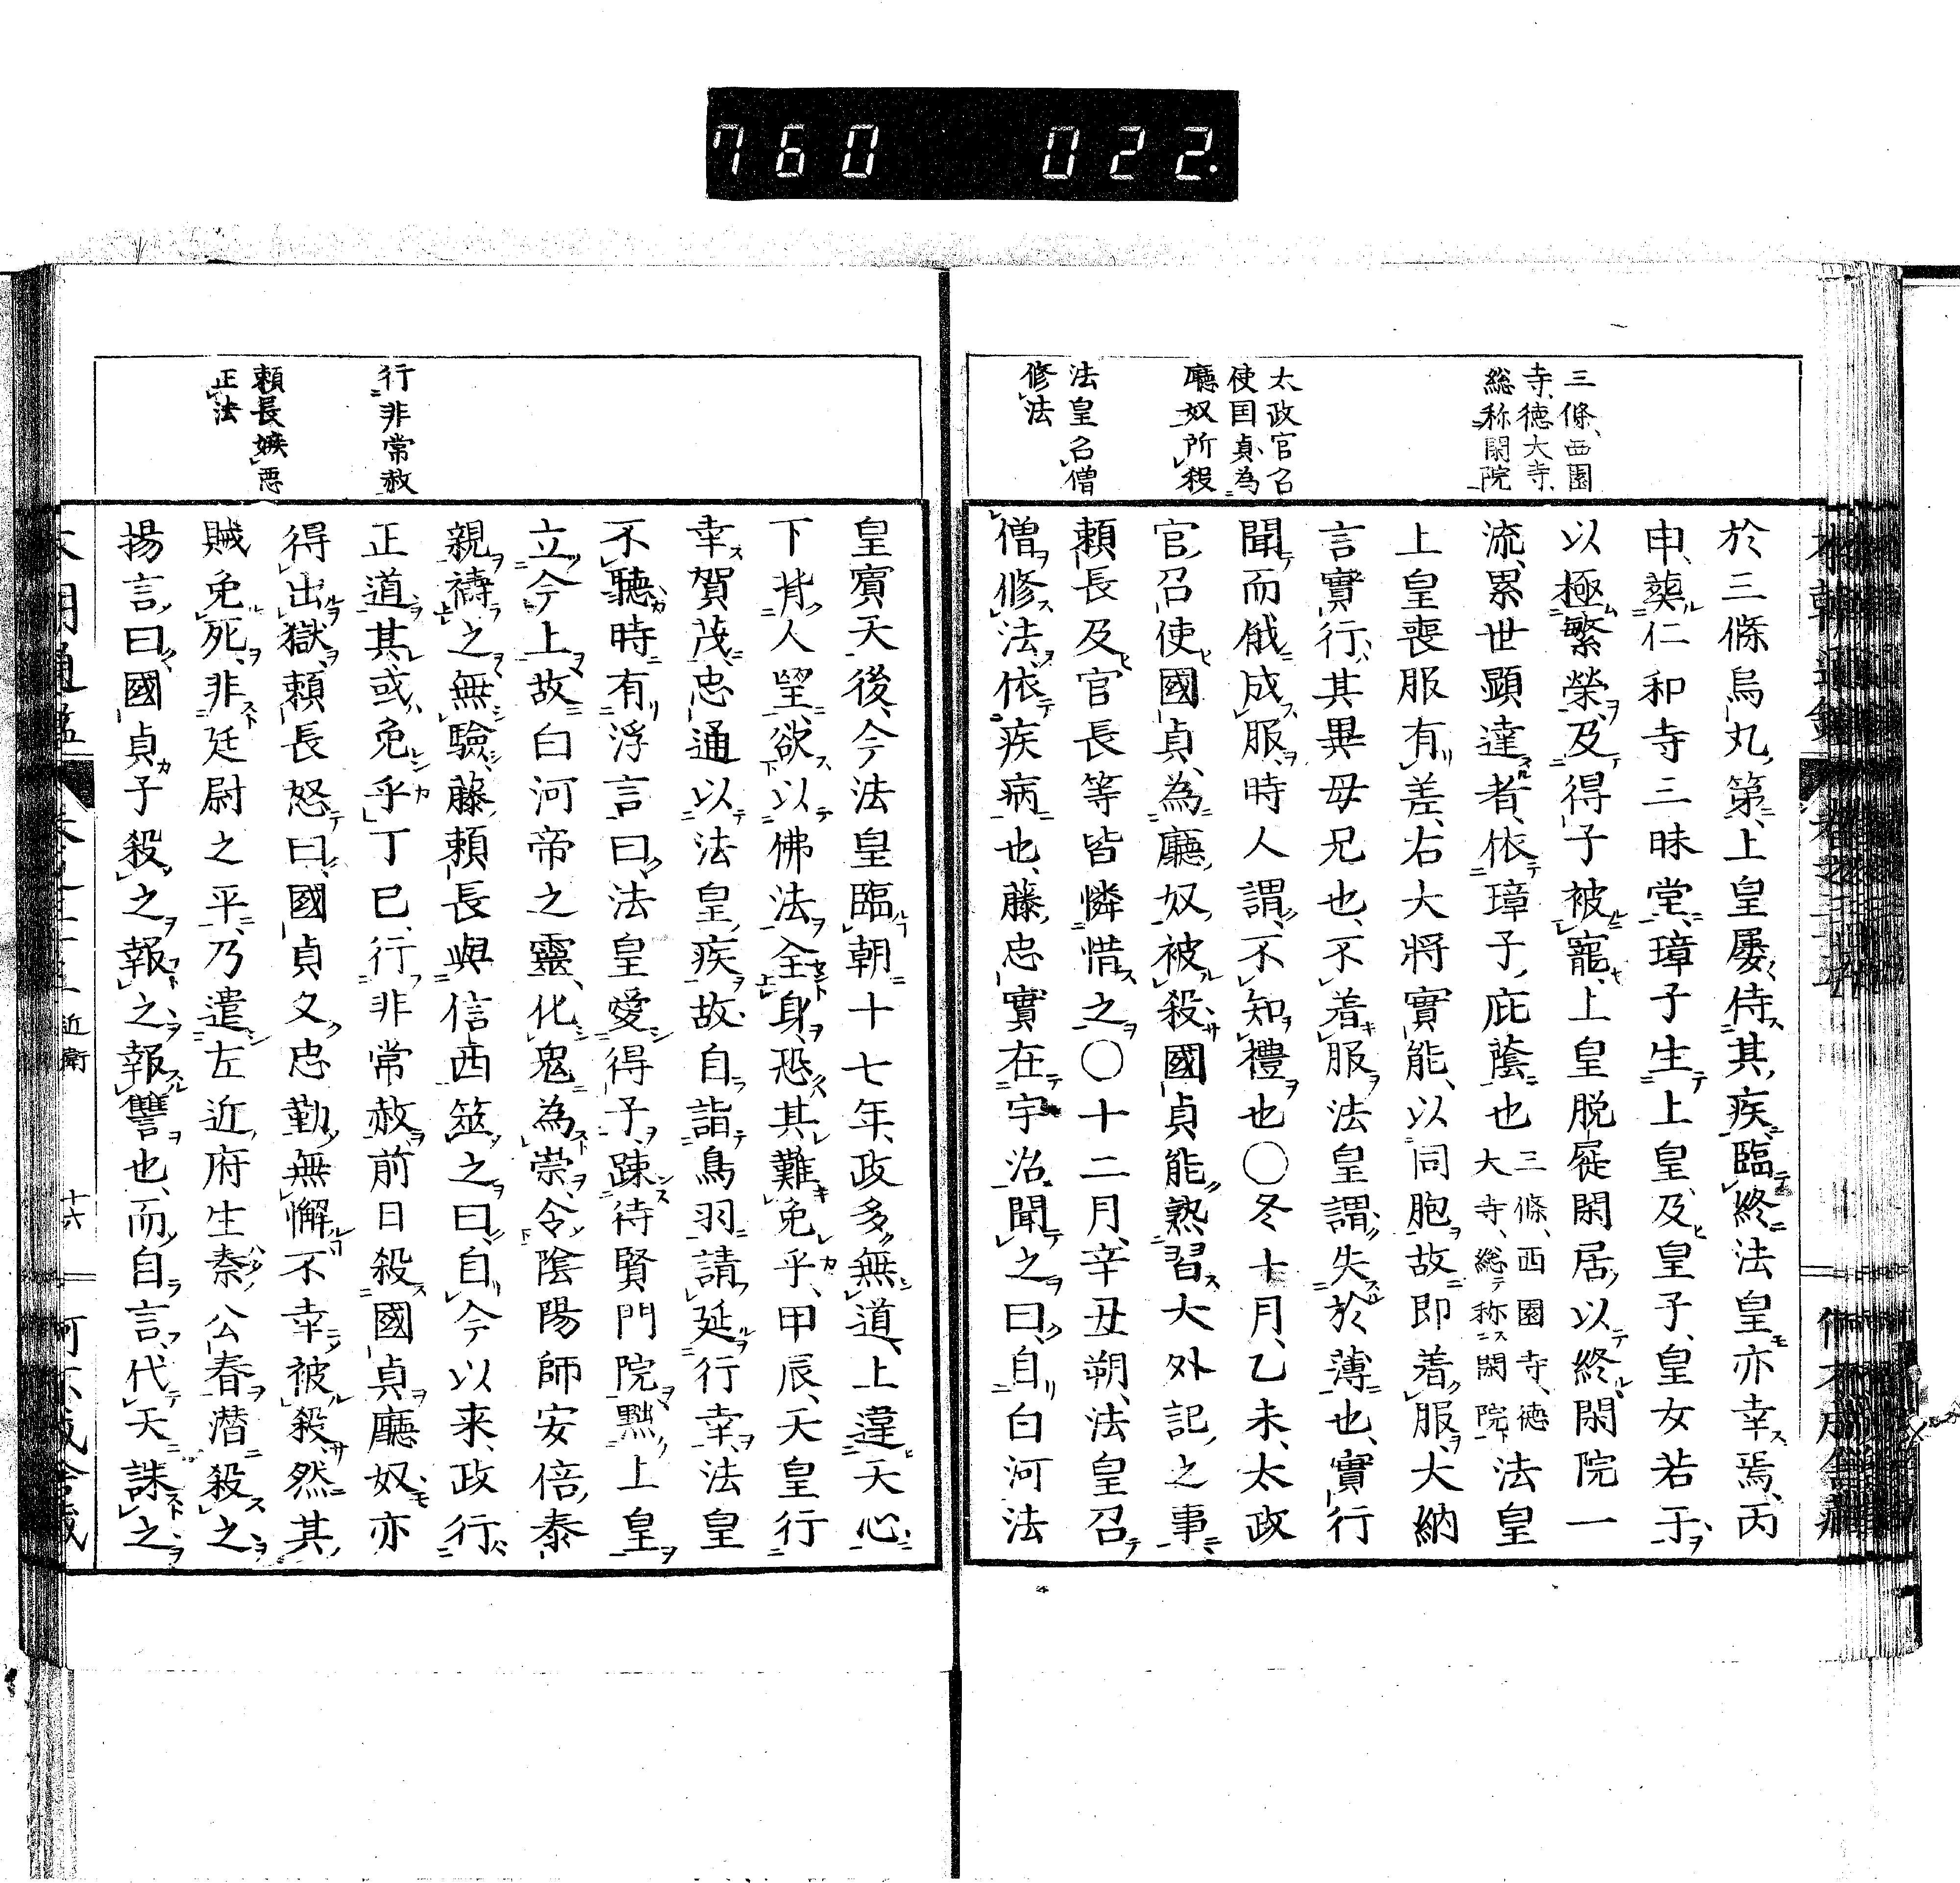 760 022.
三條、西園
寺、徳大寺、
総称閑院
太政官召
使国貞為
廳奴所殺
法皇召僧
修法
於三條烏丸第、上皇屡侍其疾、臨終法皇亦幸焉、丙
申、葬仁和寺三昧堂、璋子生上皇、及皇子、皇女若于、
以極繁榮、及得子被寵、上皇脱屣閑居、以終閑院一
流、累世顕達者、依璋子庇蔭也三條、西園寺、徳大寺、総称閑院法皇
上皇喪服有差、右大将實能、以同胞故即着服、大納
言實行、其異母兄也、不着服法皇謂失於薄也、實行
聞而俄成服、時人謂、不知禮也〇冬十月、乙未、太政
官、召使國貞、為廳奴被殺國貞能熟習大外記之事、
頼長及官長等皆憐惜之〇十二月、辛丑朔、法皇召
僧修法、依疾病也、藤忠實在宇治聞之曰、自白河法
行非常赦
頼長嫉悪
正法
皇賓天後、今法皇臨朝十七年、政多無道、上違天心、
下背人望、欲以佛法全身、恐其難免乎、甲辰、天皇行
幸賀茂、忠通以法皇疾故、自詣鳥羽請延行幸、法皇
不聽時有浮言曰、法皇愛得子、踈待賢門院黜上皇
立今上故白河帝之靈、化鬼為祟、令陰陽師安倍泰
親禱之無驗、藤頼長與信西筮之曰、自今以来、政行
正道其或免乎丁巳、行非常赦前日殺國貞廳奴亦
得出獄、頼長怒曰、國貞、文忠勤、無懈不幸被殺、然其
賊免死、非廷尉之平、乃遣左近府生秦公春潜殺之、
揚言曰、國貞子殺之報之報讐也、而自言、代天誅之
近衛
十六